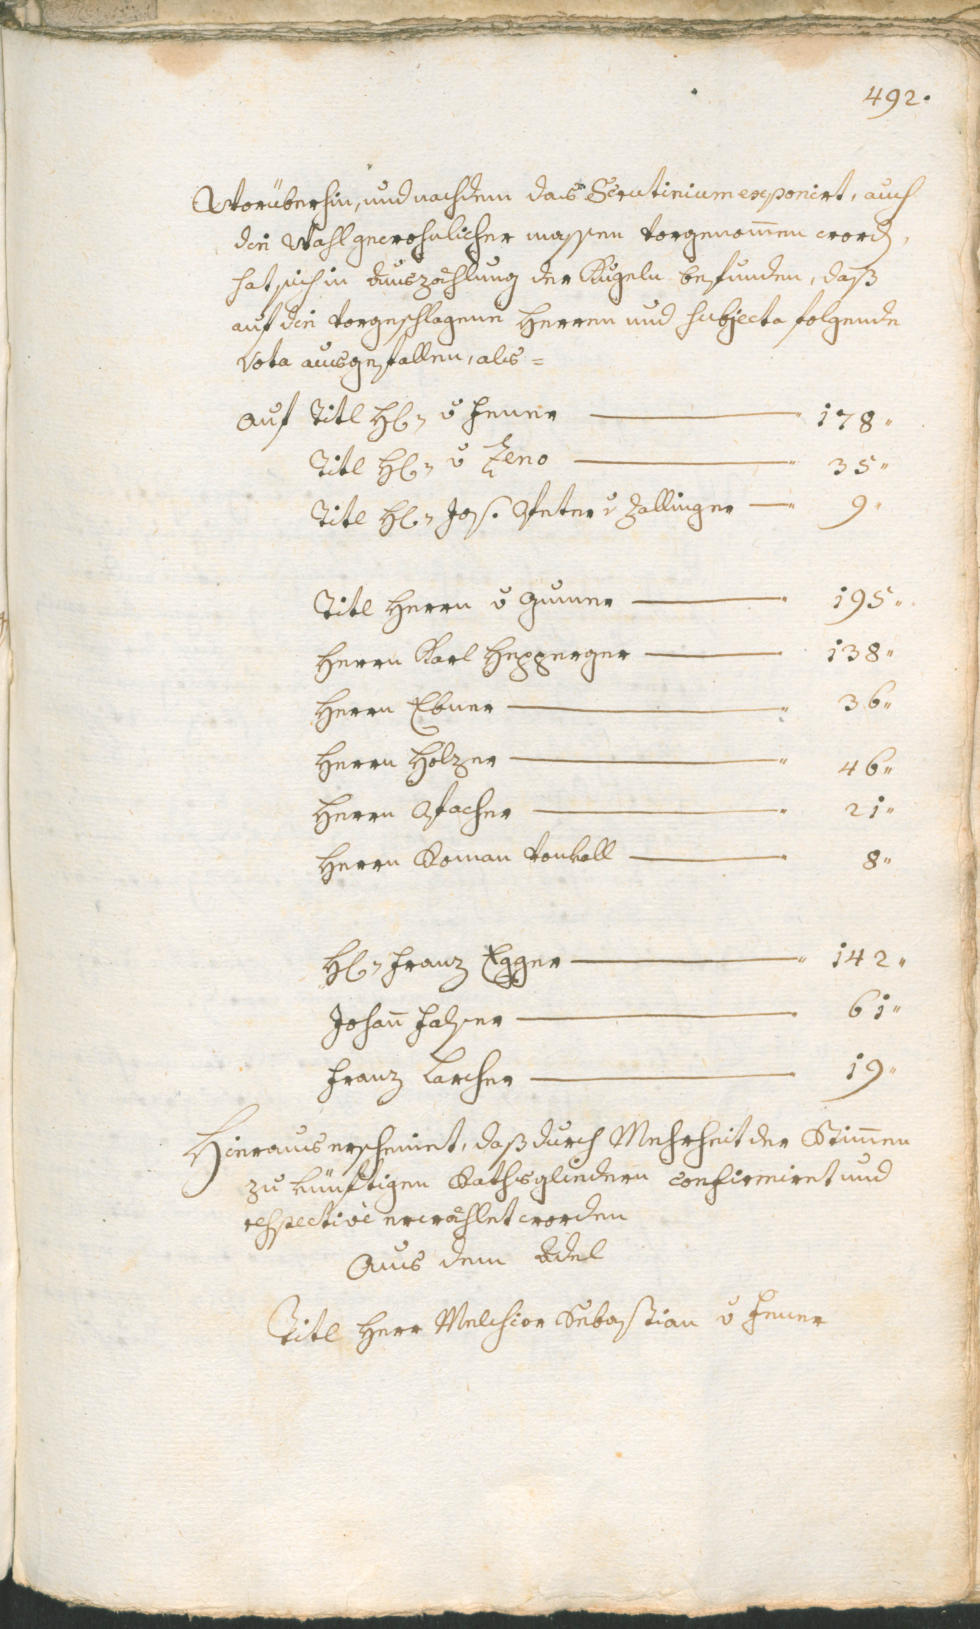 492.
Worüberhin, und nachdem das Scrutinium exponirt, auch
die Wahl gewohnlicher massen vorgenom̅en word,
hat sich in Auszöhlung der Kugeln befunden, daß
auf die vorgeschlagene Herren und Subjecta folgende
Vota ausgefallen, als =
Auf Titl H. v Jenner — 178"
Titl H. v Zeno — 35"
Titl H. Jos. Peter v Zallinger — 9"
Titl Herrn v Gumer — 195"
Herrn Karl Hepperger — 138"
Herrn Ebner — 36"
Herrn Holzer — 46"
Herrn Pacher — 21"
Herrn Roman Vonkoll — 8"
H. Franz Egger — 142"
Johan̅ Falser — 61"
Franz Larcher — 19"
Hieraus erscheinet, daß durch Mehrheit der Stim̅en
zu künftigen Rathsgliedern confirmiret und
respectivè erwöhlet worden
Aus dem Adel
Titl Herr Melchior Sebastian v Jenner